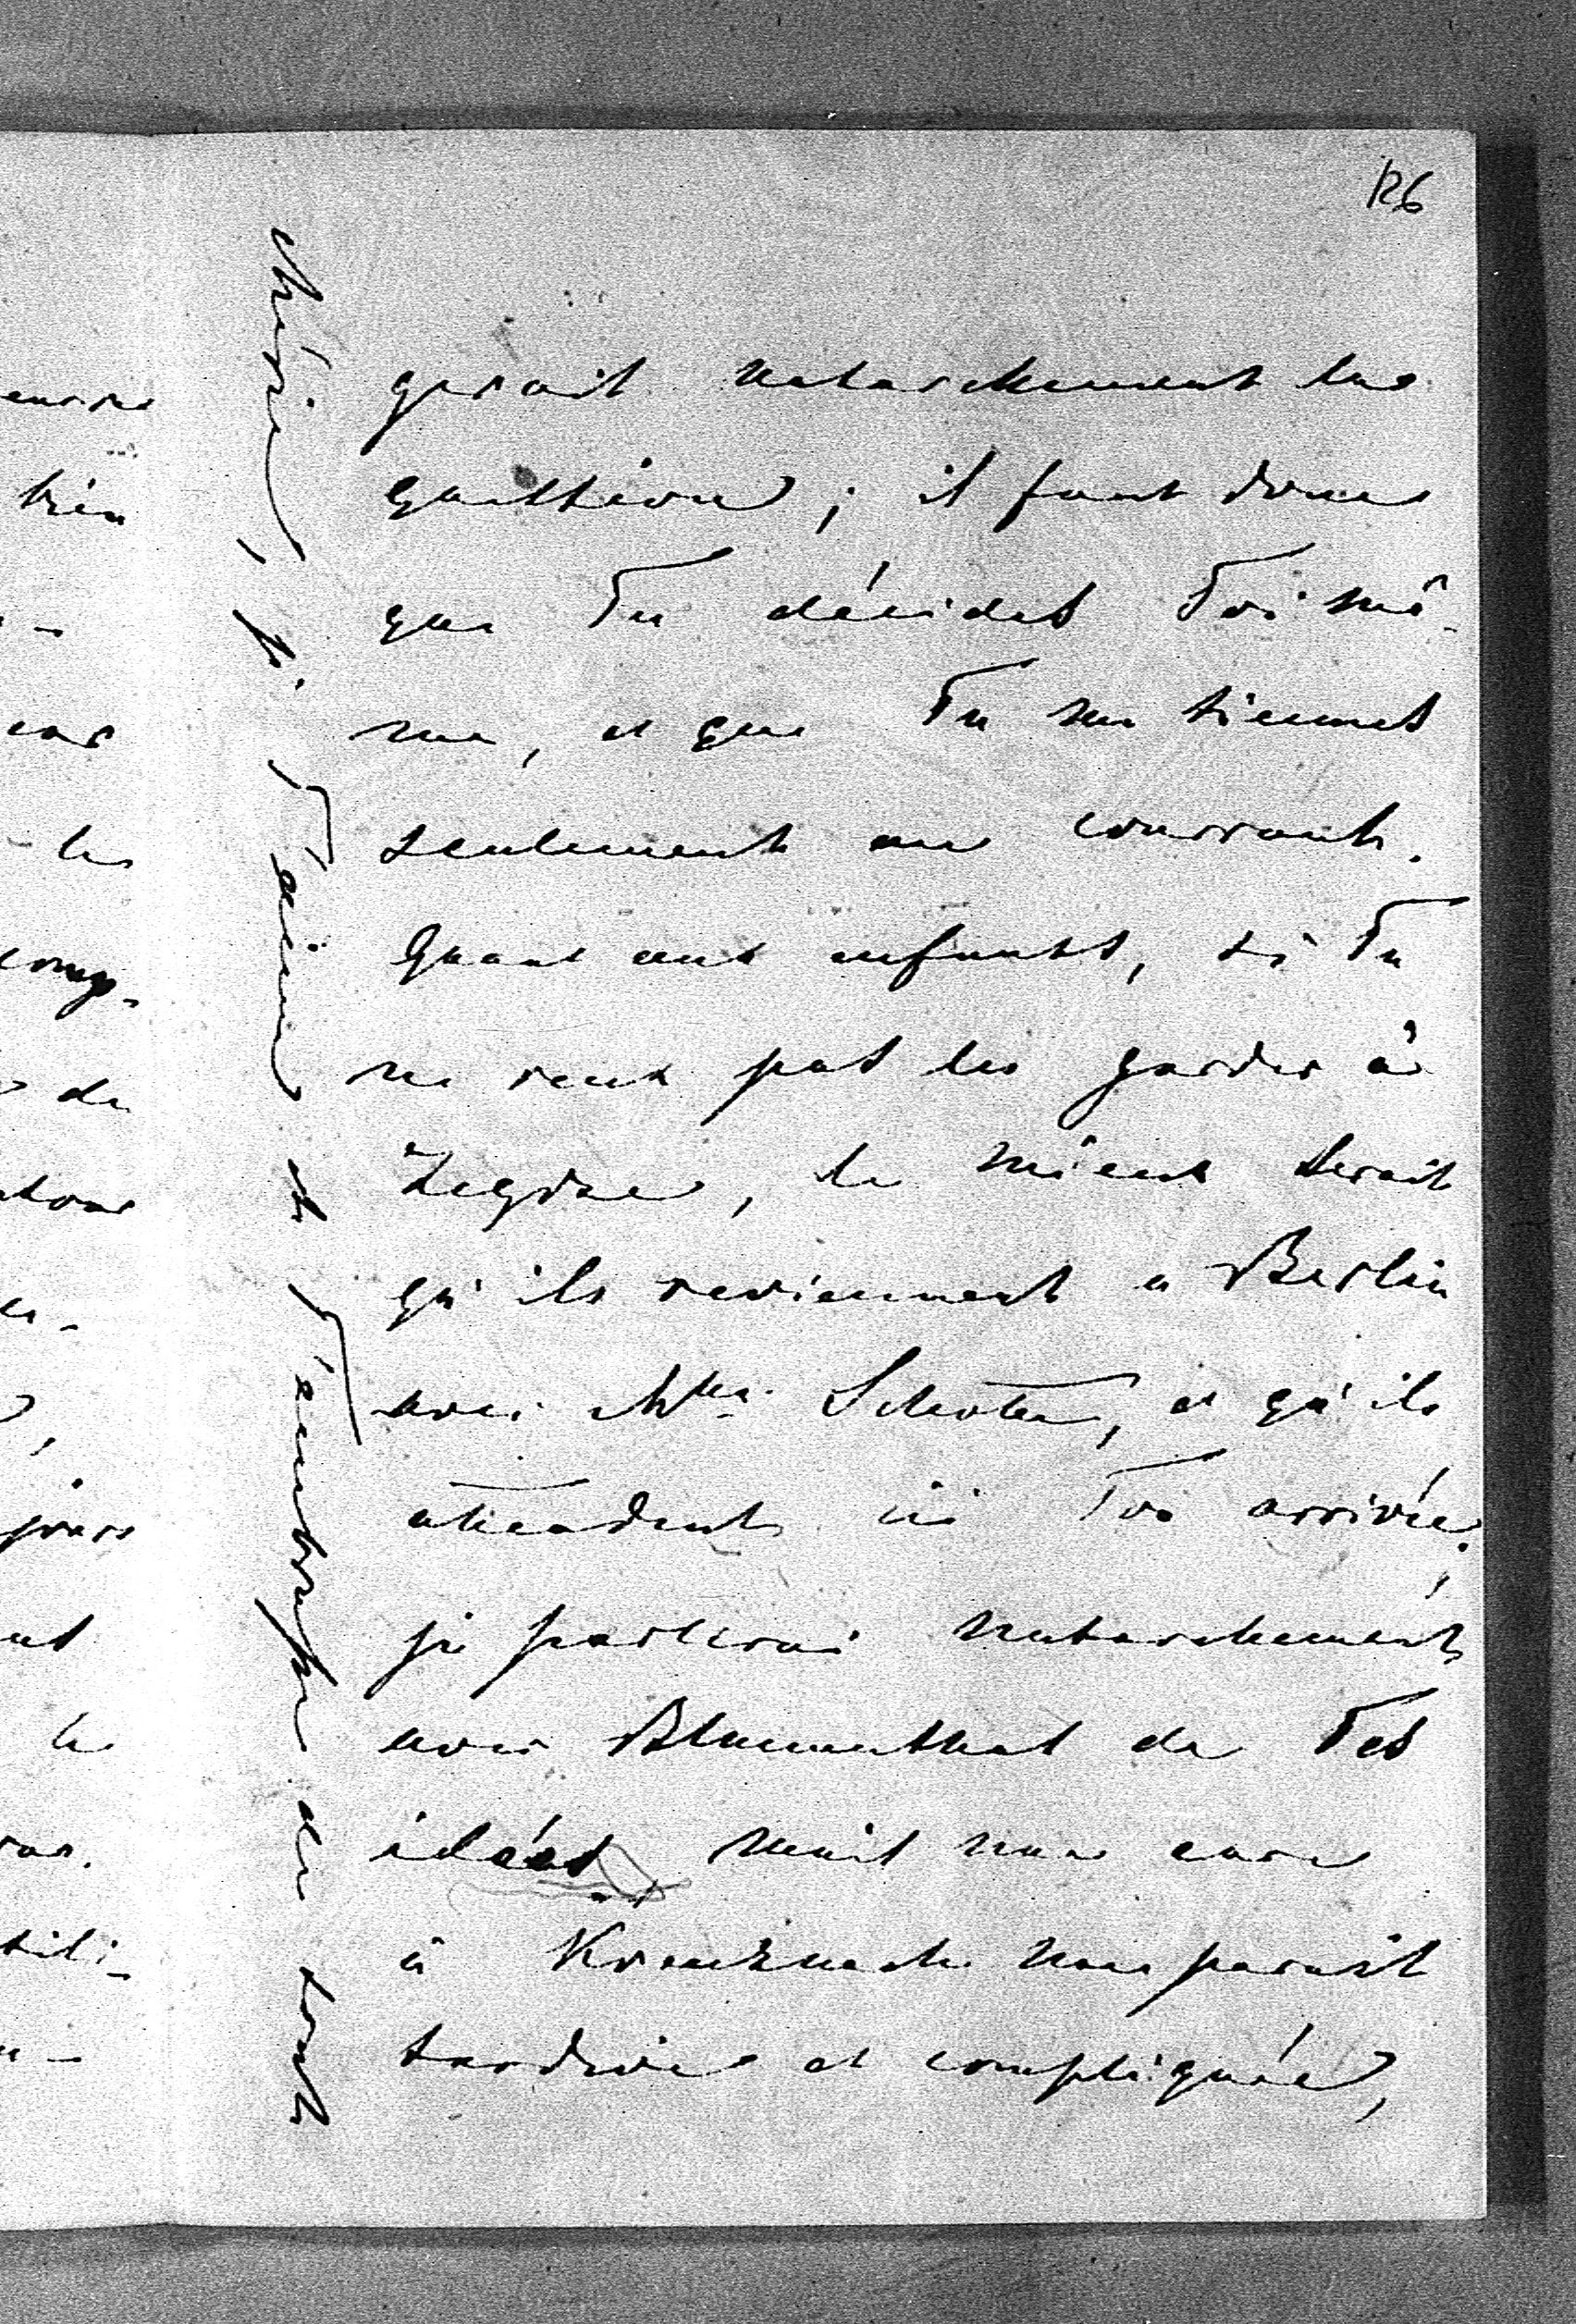 126
gerait naturellement la
question; il faut donc
que Tu décides Toi mê-
me, et que Tu me tiennes
seulement au courrant.
Quant aux enfants, si Tu
ne veux pas les garder à
Zegrze, le mieux serait
qu'ils reviennent a Berlin
avec Mlle Schotten, et qu'ils
attendent ici Ton arrivée.
je parlerai naturellement
avec Blumenthal de Tes
idées mais une cure
à Kreuznach me parait
tardive et compliquée,
chérie, je T'aime et T'embrasse de tout
bien
les
comp-
de
jours
le